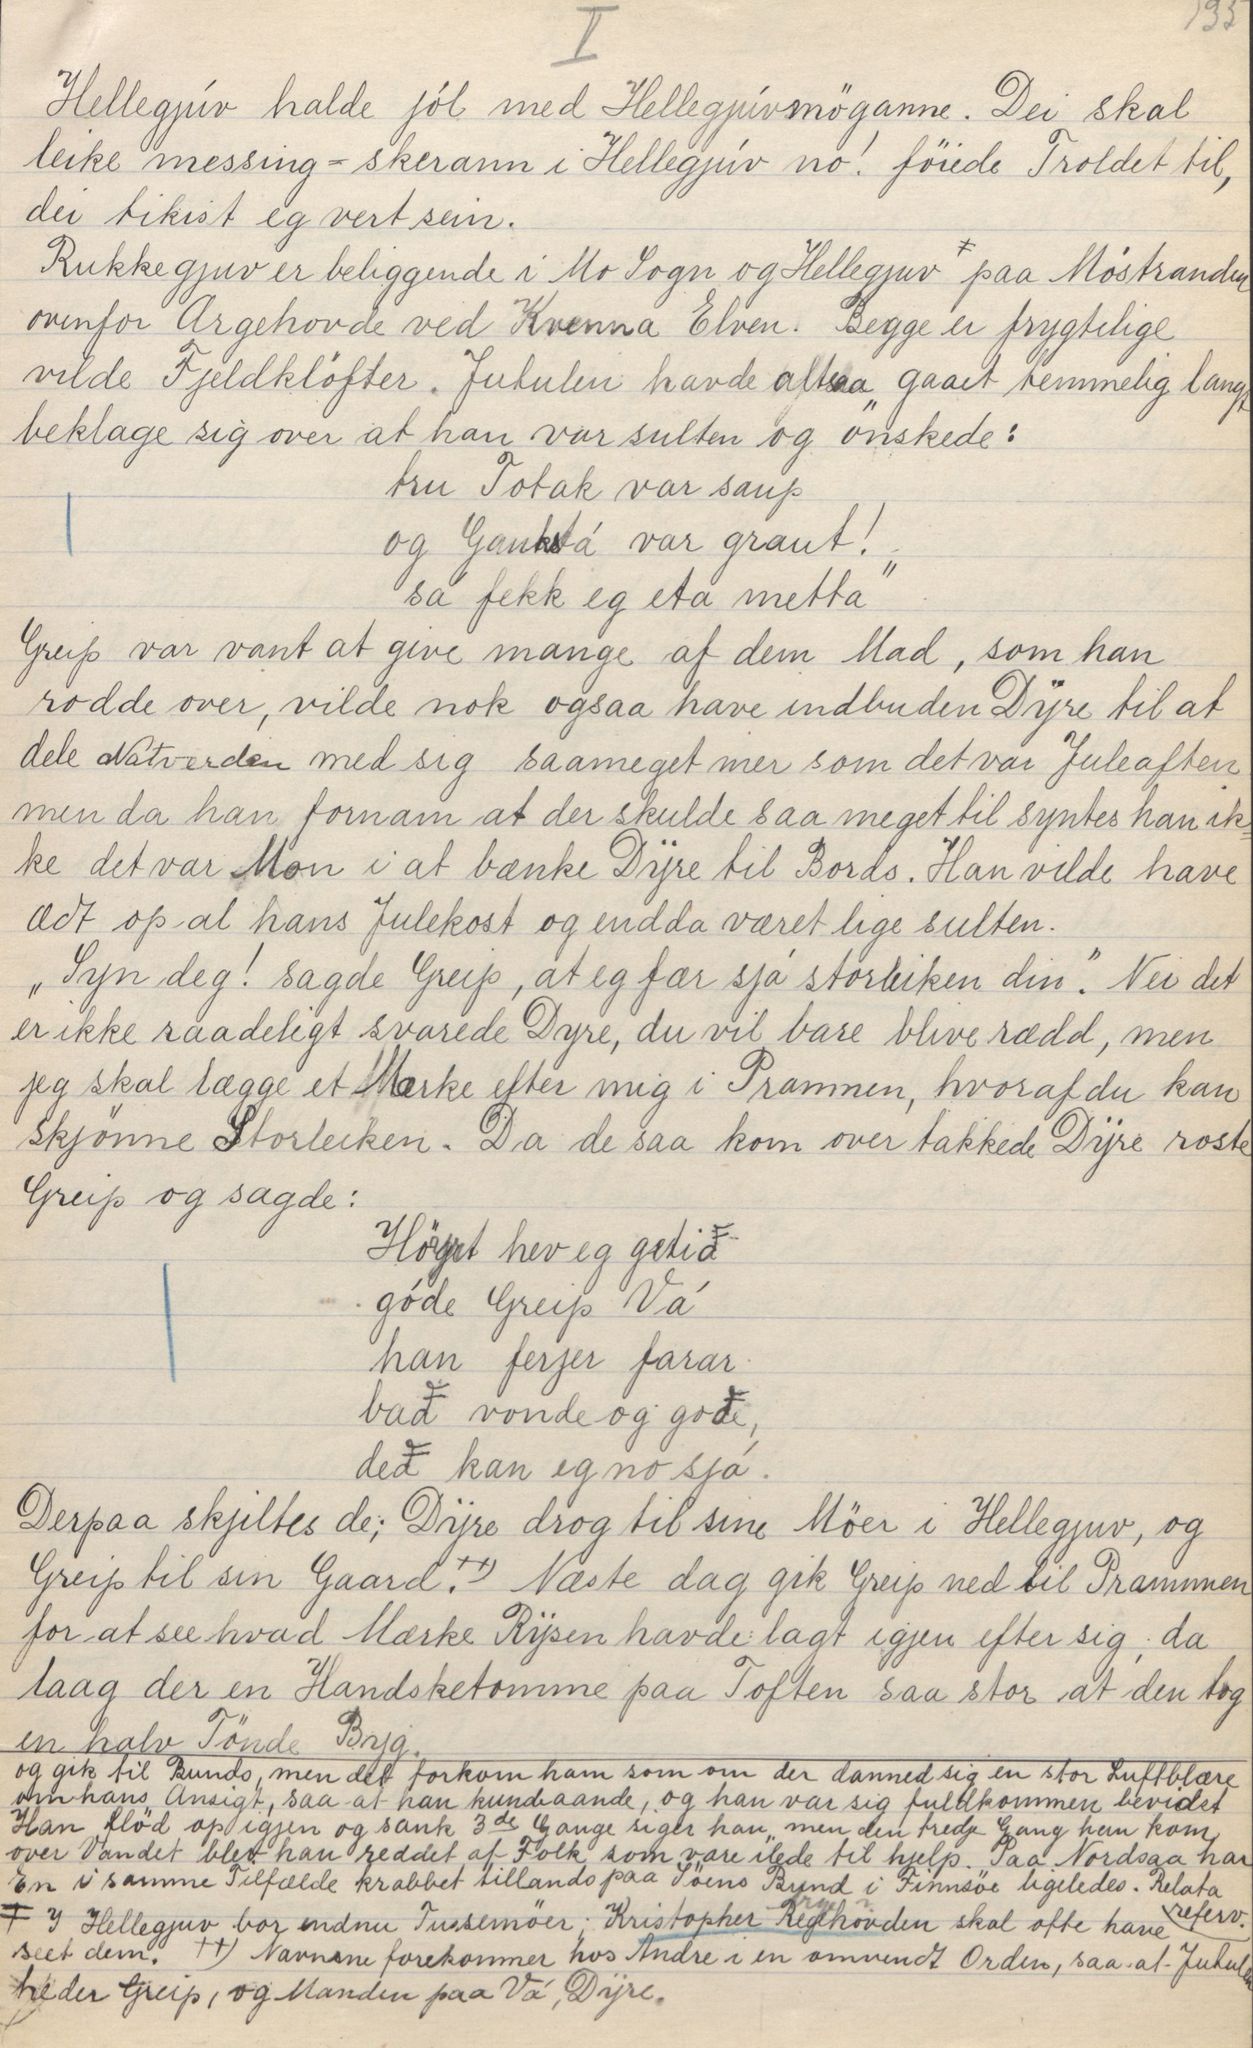 I
195
Hellegjúv halde jól med Hellegjúvmöganne. Dei skal
leike messing=skerann i Hellegjúv no! föiede Troldet til,
dei tikist eg vert sein.
Rukkegjuv er beliggende i Mo Sogn og Hellegjuv ‡ paa Möstranden
ovenfor Argehovde ved Kvenna Elven. Begge er frygtelige
vilde Fjeldklöfter. Jutulen havde altsaa gaaet temmelig langt
beklage sig over at han var sulten og önskede:
„tru Totak var saup
og Gaukstá var graut!
sá fekk eg eta metta"
Greip var vant at give mange af dem Mad, som han
rodde over, vilde nok ogsaa have indbuden Dÿre til at
dele Natverden med sig saameget mer som det var Juleaften
men da han fornam at der skulde saa meget til syntes han ik=
ke det var Mon i at bænke Dÿre til Bords. Han vilde have
ædt op al hans Julekost og endda været lige sulten.
„Syn deg! sagde Greip, at eg fær sjá storleiken din". Nei det
er ikke raadeligt svarede Dyre, du vil bare blive rædd, men
jeg skal lægge et Mærke efter mig i Prammen, hvoraf du kan
skjönne Storleiken. Da de saa kom over takkede Dÿre roste
Greip og sagde:
Höyrt hev eg getið
góde Greip Vá
han ferjer farar
bað vonde og goðe,
deð kan eg no sjá.
Derpaa skjiltes de; Dÿre drog til sine Möer i Hellegjuv, og
Greip til sin Gaard.††) Næste dag gik Greip ned til Prammen
for at see hvad Mærke Rÿsen havde lagt igjen efter sig, da
laag der en Handsketomme paa Toften saa stor at den tog
en halv Tönde Byg.
og gik til Bunds, men det forkom ham som om der danned sig en stor Luftblære
om hans Ansigt, saa at han kunde aande, og han var sig fuldkommen bevidst
Han flöd op igjen og sank 3de Gange siger han, men den tredje Gang han kom
over Vandet blev han reddet af Folk som vare ilede til hjelp. Paa Nordsaa har
En i samme Tilfælde krabbet tillands paa Söens Bund i Finnsöe ligeledes. Relata
referv.
‡ I Hellegjuv bor endnu Tussemöer; Kristopher hovden skal ofte have
seet dem. ††) Navnene forekommer hos Andre i en omvendt Orden, saa at Jutulen
heder Greip, og Manden paa Vá, Dÿre.